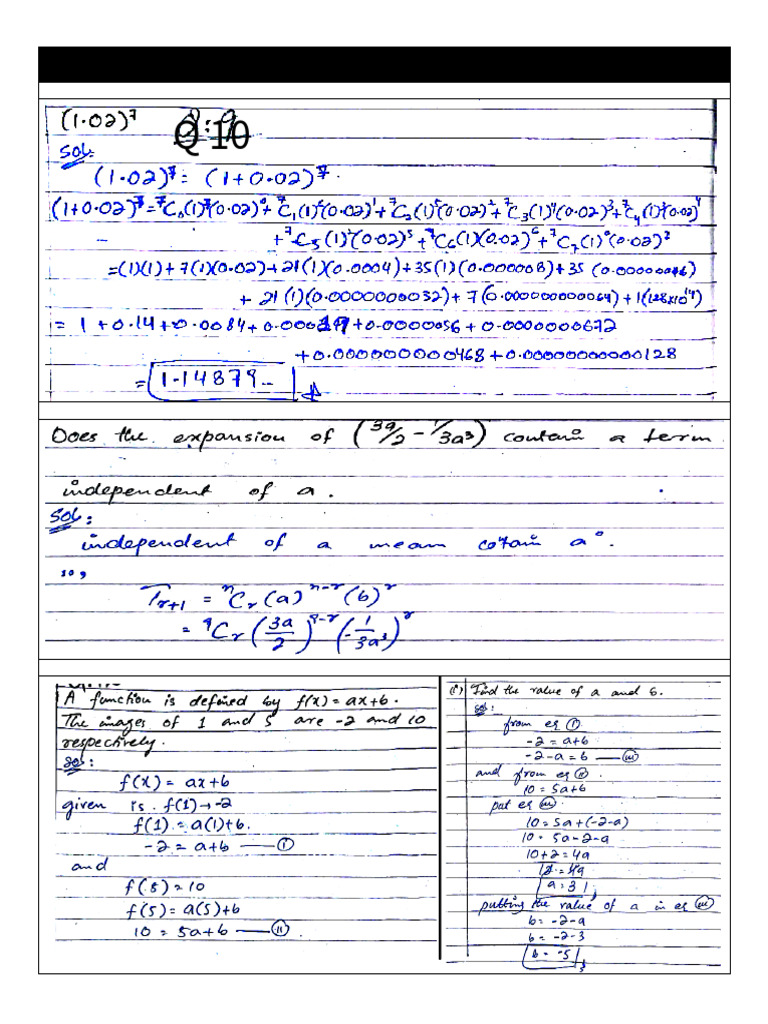 (1.02)⁷
Q 10
Sol:
(1.02)⁷ = (1+0.02)⁷.
(1+0.02)⁷ = ⁷C₀(1)⁷(0.02)⁰ + ⁷C₁(1)⁶(0.02)¹ + ⁷C₂(1)⁵(0.02)² + ⁷C₃(1)⁴(0.02)³ + ⁷C₄(1)³(0.02)⁴
+ ⁷C₅(1)²(0.02)⁵ + ⁷C₆(1)(0.02)⁶ + ⁷C₇(1)⁰(0.02)⁷
= (1)(1) + 7(1)(0.02) + 21(1)(0.0004) + 35(1)(0.000008) + 35 (0.00000016)
+ 21(1)(0.0000000032) + 7(0.000000000064) + 1(128×10⁻¹⁴)
= 1 + 0.14 + 0.0084 + + 0.0000056 + 0.0000000672
+ 0.000000000468 + 0.0000000000128
= 1.14879..
Does the expansion of (3a/2 - 1/3a³) contain a term
independent of a.
Sol:
independent of a mean cotain a°.
so,
Tᵣ₊₁ = ⁿCᵣ (a)ⁿ⁻ʳ (b)ʳ
= ⁹Cᵣ (3a/2)⁹⁻ʳ (-1/3a³)ʳ
A function is defined by f(x) = ax+b.
The images of 1 and 5 are -2 and 10
respectively.
Sol:
f(x) = ax+b
given is f(1) → -2
f(1) = a(1)+b.
-2 = a+b — (i)
and
f(5) = 10
f(5) = a(5)+b
10 = 5a+b — (ii)
(i) Find the value of a and b.
Sol:
from eq (i)
-2 = a+b
-2-a = b — (iii)
and from eq (ii)
10 = 5a+b
put eq (iii)
10 = 5a+(-2-a)
10 = 5a-2-a
10+2 = 4a
12 = 4a
a = 3
putting the value of a in eq (iii)
b = -2-a
b = -2-3
b = -5